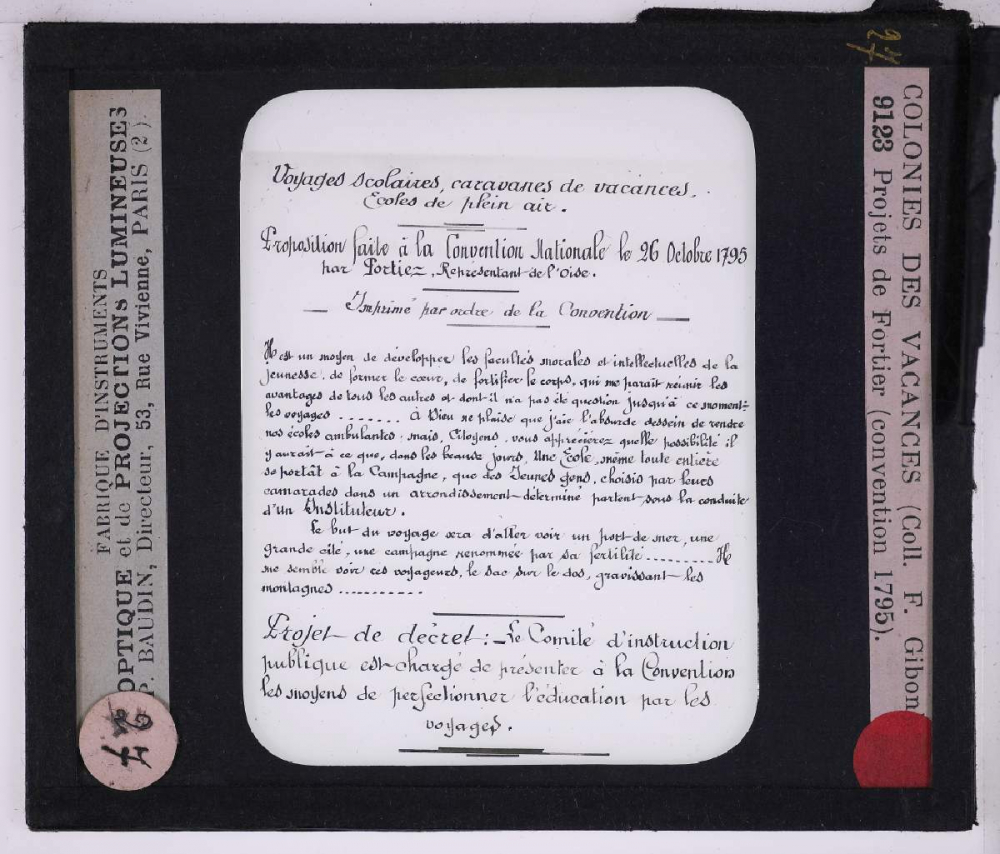 FABRIQUE D'INSTRUMENTS
OPTIQUE et de PROJECTIONS LUMINEUSES
P. BAUDIN, Directeur, 53, Rue Vivienne, PARIS (2).
27
Voyages scolaires, caravanes de vacances.
Ecoles de plein air.
Proposition faite à la Convention Nationale le 26 Octobre 1795
par Portiez, Représentant de l'Oise.
— Imprimé par ordre de la Convention —
Il est un moyen de développer les facultés morales et intellectuelles de la
jeunesse, de former le cœur, de fortifier le corps, qui me parait réunir les
avantages de tous les autres et dont il n'a pas été question jusqu'à ce moment:
les voyages ....... à Dieu ne plaise que j'aie l'absurde dessein de rendre
nos écoles ambulantes; mais, Citoyens, vous apprécierez quelle possibilité il
y aurait à ce que, dans les beaux jours, Une Ecole, même toute entière
se portât à la Campagne, que des Jeunes gens, choisis par leurs
camarades dans un arrondissement déterminé partent sous la conduite
d'un Instituteur.
Le but du voyage sera d'aller voir un port de mer, une
grande cité, une campagne renommée par sa fertilité ......... Il
me semble voir ces voyageurs, le sac sur le dos, gravissant les
montagnes ...........
Projet de décret: Le Comité d'instruction
publique est chargé de présenter à la Convention
les moyens de perfectionner l'éducation par les
voyages.
27
COLONIES DES VACANCES (Coll. F. Gibon
9123 Projets de Fortier (convention 1795).